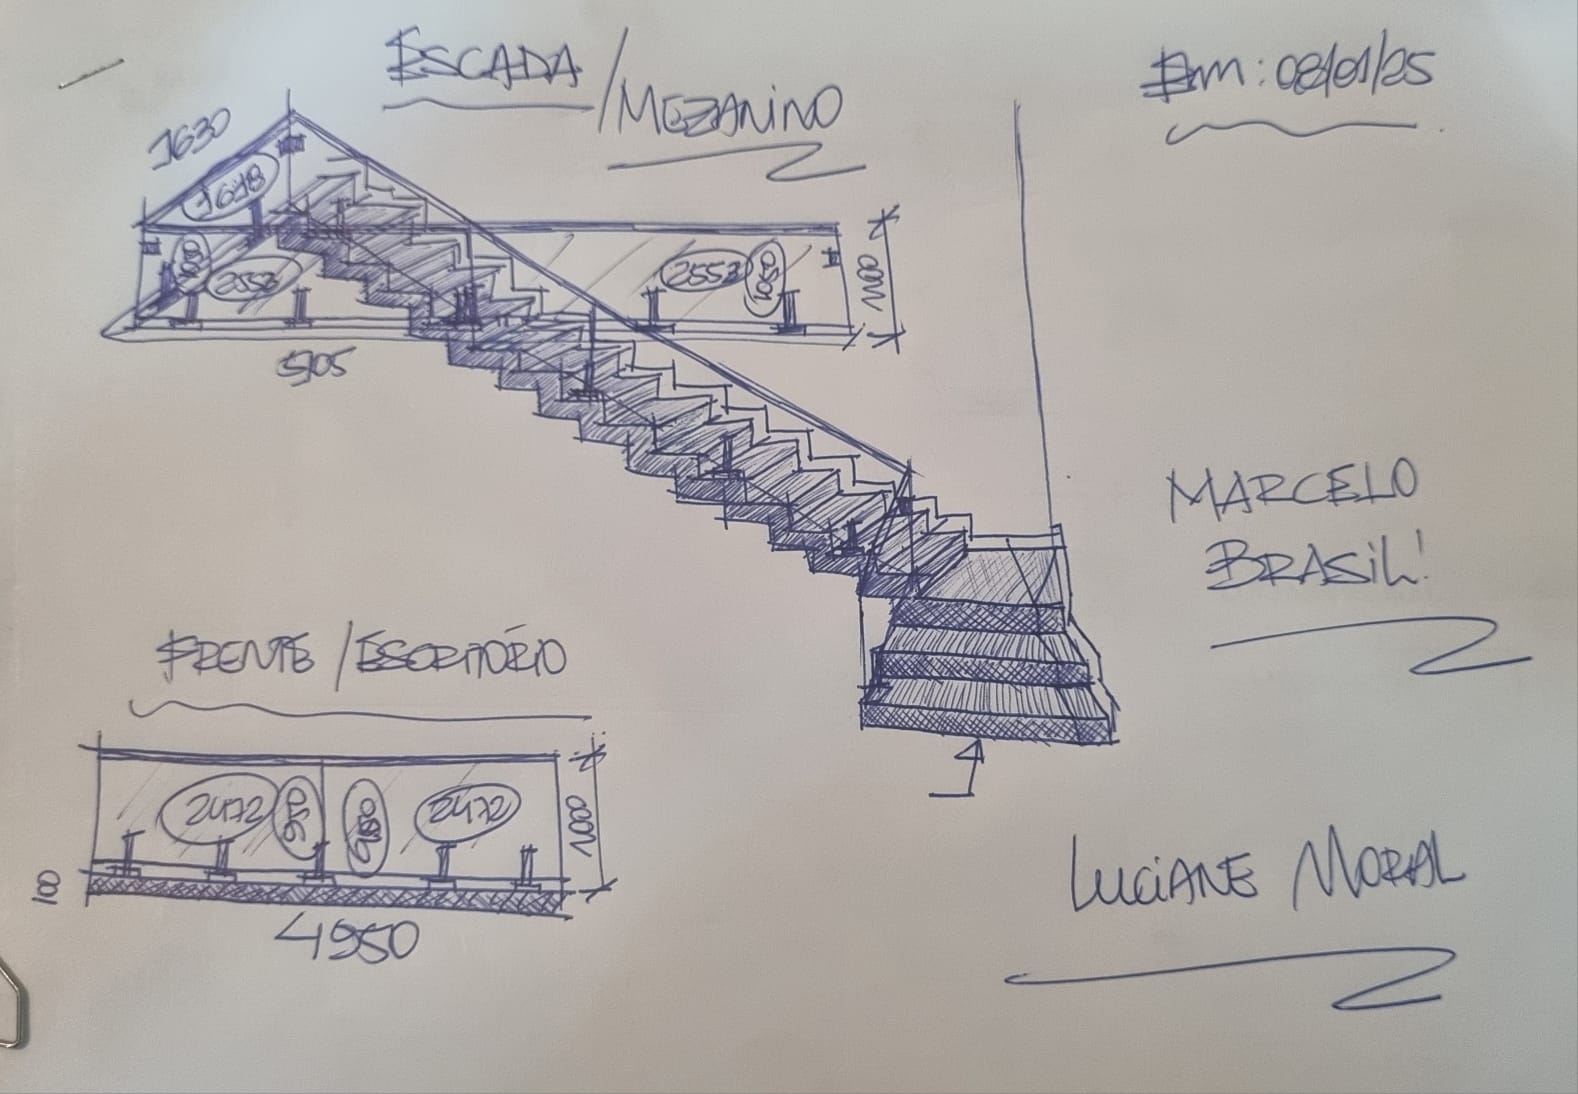 ESCADA
/MEZANINO
Em: 08/01/25
1630
1678
2553
2553
1050
1000
5105
MARCELO
BRASIL!
FRENTE/ESCRITÓRIO
2472
950
950
2472
1000
100
4950
LUCIANE MORAL